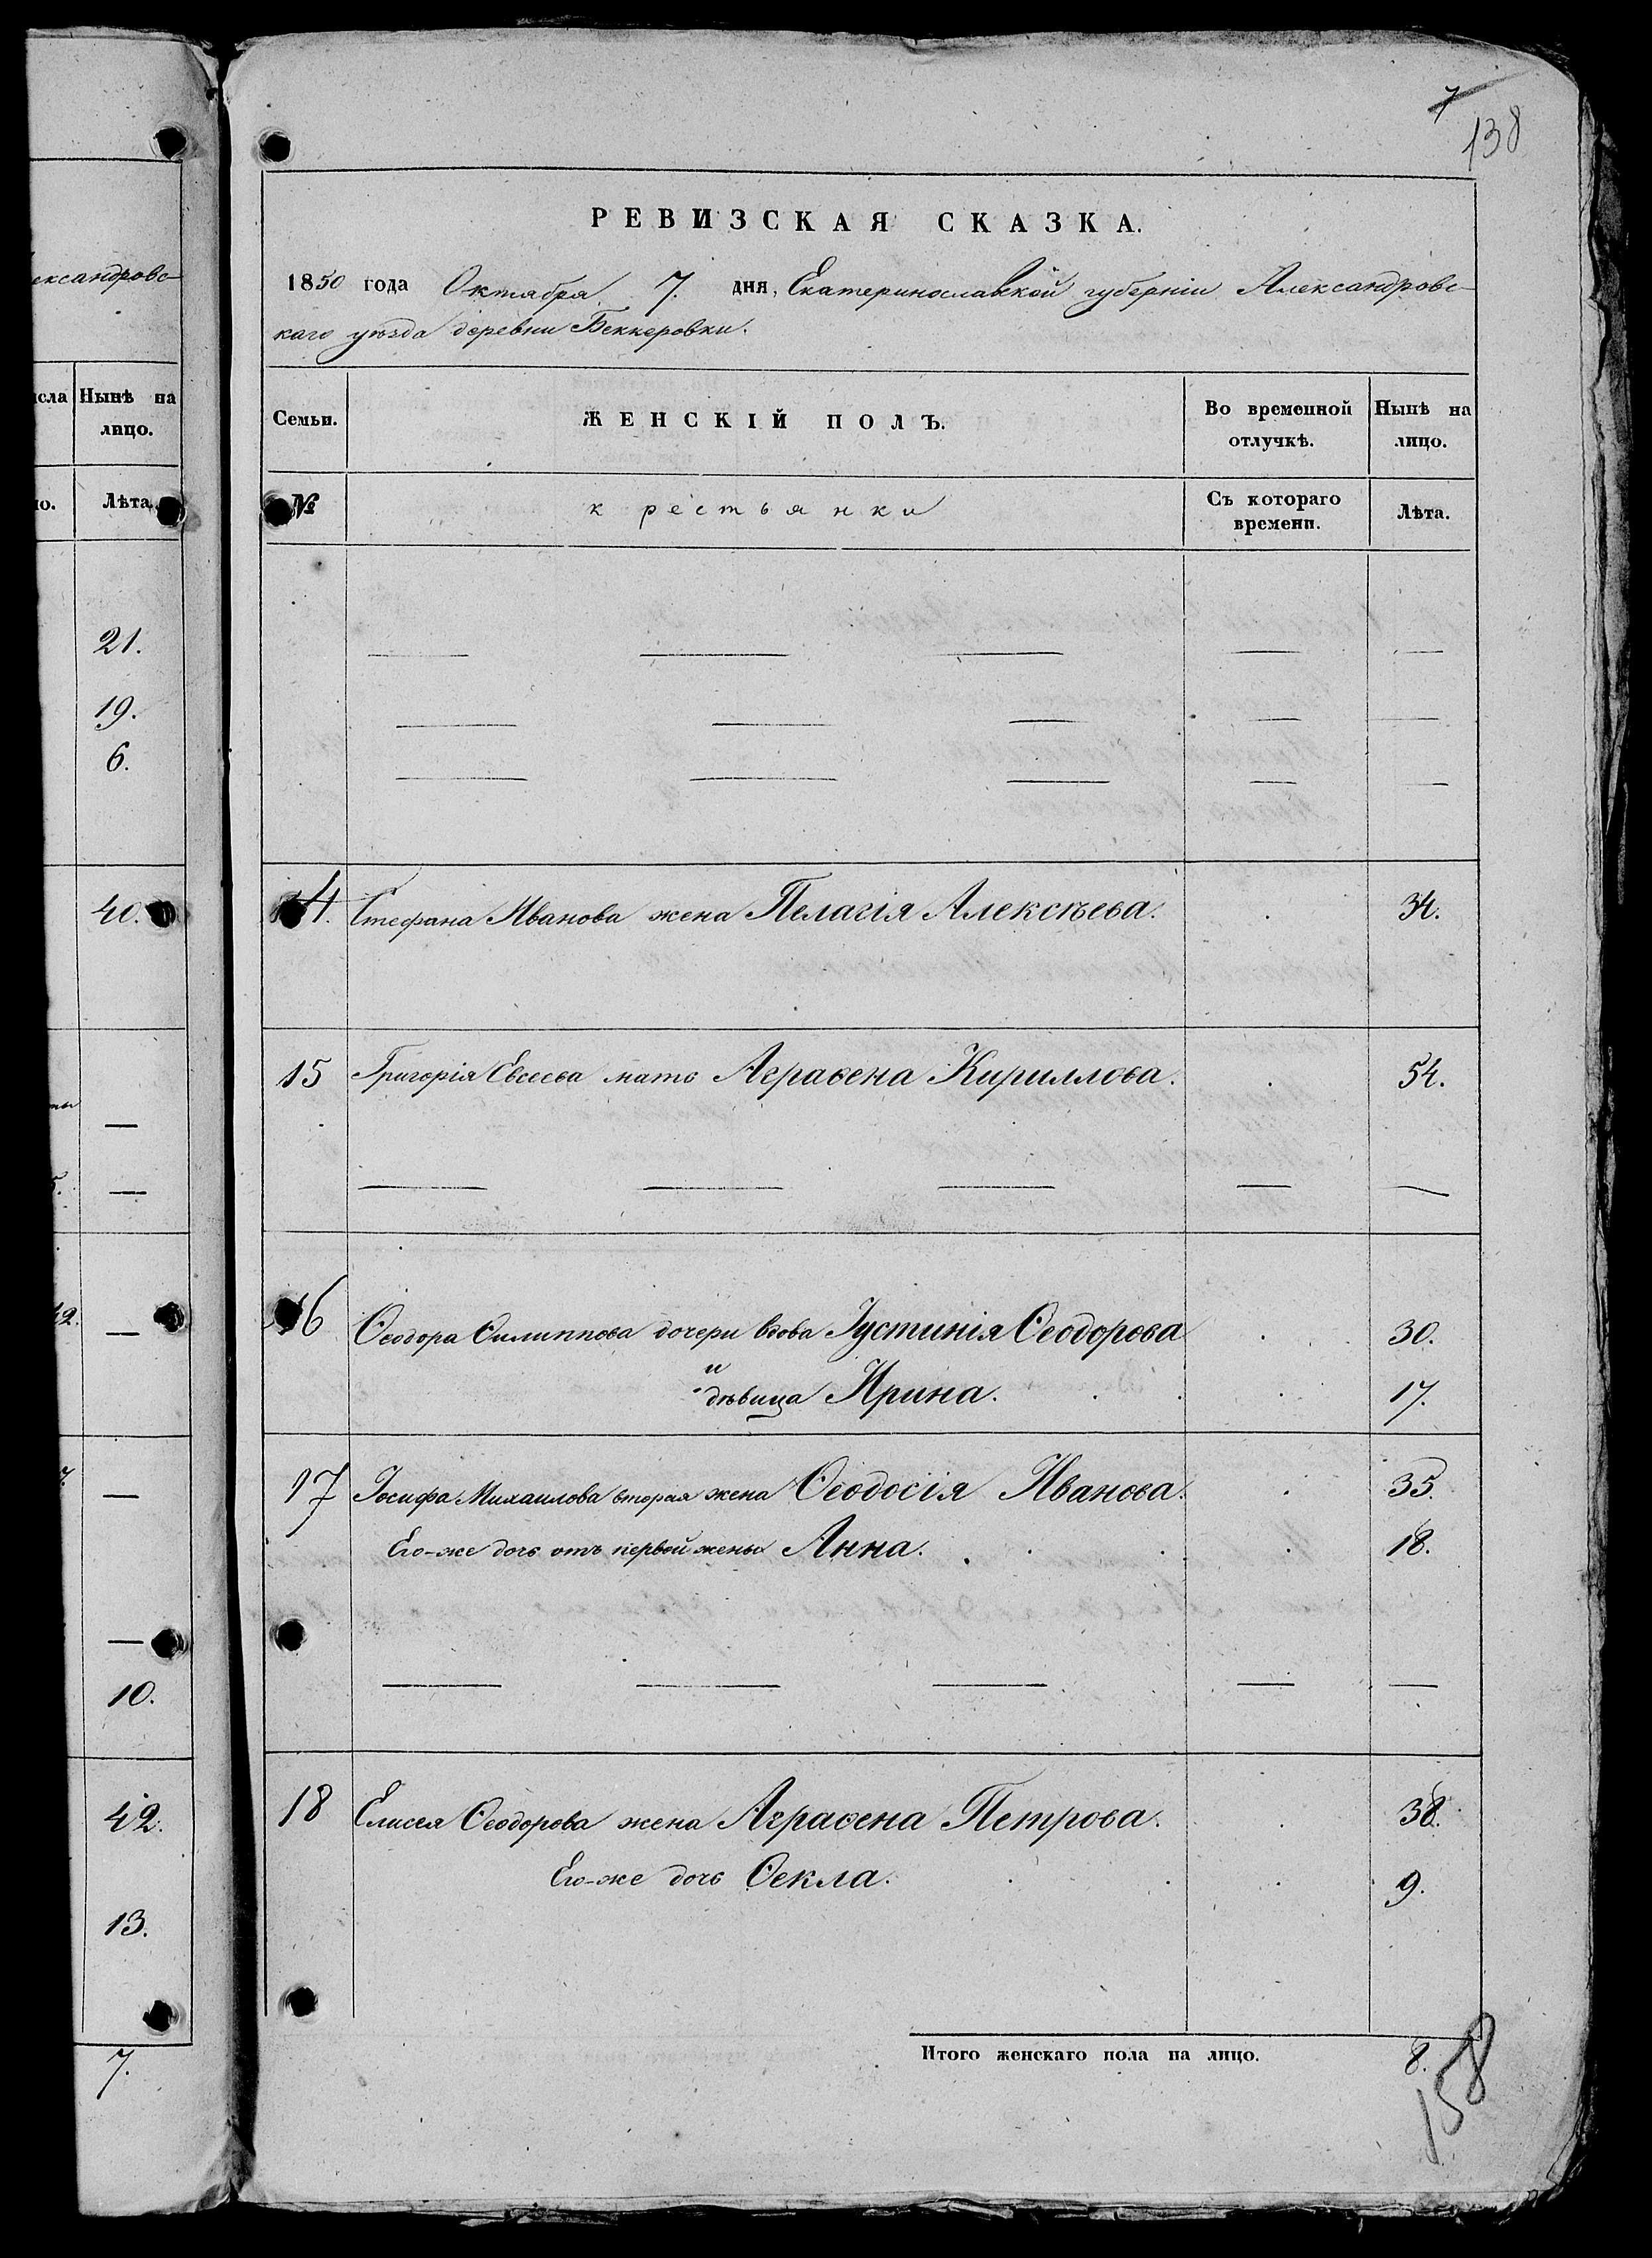 7
138
ександровс-
исла Нынѣ на
лицо.
но. Лѣта.
21.
19.
6.
40.
42.
10.
42.
13.
7.
РЕВИЗСКАЯ СКАЗКА.
1850 года Октября 7. дня, Екатеринославкой губерніи Александровс-
каго уѣзда деревни Беккеровки.
Семьи. ЖЕНСКІЙ ПОЛЪ. Во временной отлучкѣ. Нынѣ на лицо.
№ крестьянки Съ котораго времени. Лѣта.
14. Стефана Иванова жена Пелагія Алексѣева. 34.
15 Григорія Евсеева мать Аграѳена Кириллова. 54.
16 Ѳеодора Ѳилиппова дочери вдова Іустинія Ѳеодорова 30.
и
дѣвица Ирина. 17.
17 Іосифа Михаилова вторая жена Ѳеодосія Иванова. 35.
Его-же дочь отъ первой жены Анна. 18.
18 Елисея Ѳеодорова жена Аграѳена Петрова. 38.
Его-же дочь Ѳекла. 9.
Итого женскаго пола на лицо. 8.
158